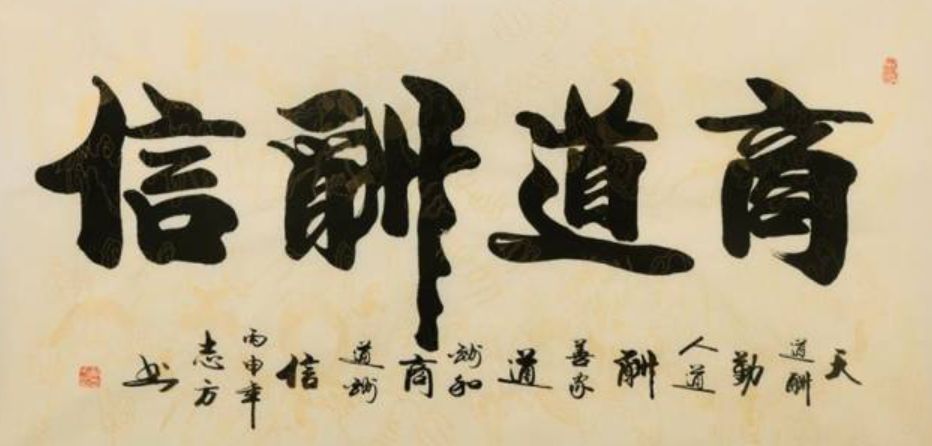 商道酬信
天道酬勤人道酬善家道酬和商道酬信丙申年志方书